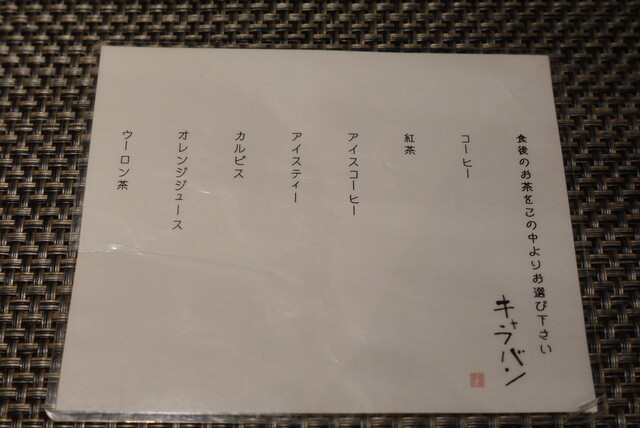 食後のお茶をこの中よりお選び下さい
キャラバン
コーヒー
紅茶
アイスコーヒー
アイスティー
カルピス
オレンジジュース
ウーロン茶